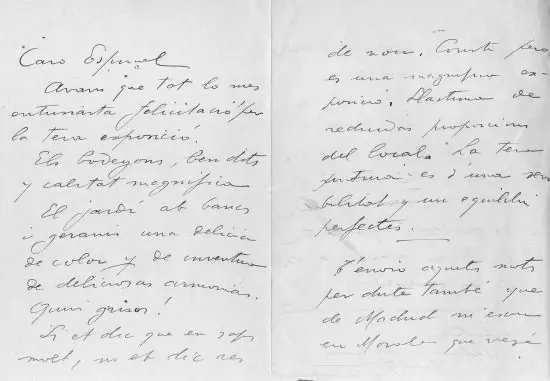 Caro Espinel
Avans que tot lo mes
entusiasta felicitació per
la teva exposició.
Els bodegons, ben dits
y calitat magnifica
El jardí ab bancs
i geranis una delicia
de color y de inventiva
de deliciosas armonias.
Quins grisos!
Si et dic que en saps
molt, no et dic res
de nou. Consti pero
es una magnifica ex-
posició. Llastima de
reduidas proporcions
del local. La teva
pintura es d'una sen
bilitat y un equilibri
perfectes.
T'envio aquets mots
per dirte també que
de Madrid m'escriu
en Morales que